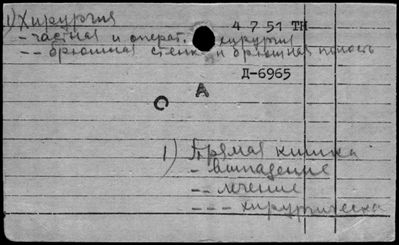 1) Хирургия
4 7 51 ТН
- частная и операт. хирургия
-- брюшная стенк и брюшная полость
Д-6965
С А
1) Прямая кишка
- выпадение
-- лечение
--- хирургическа